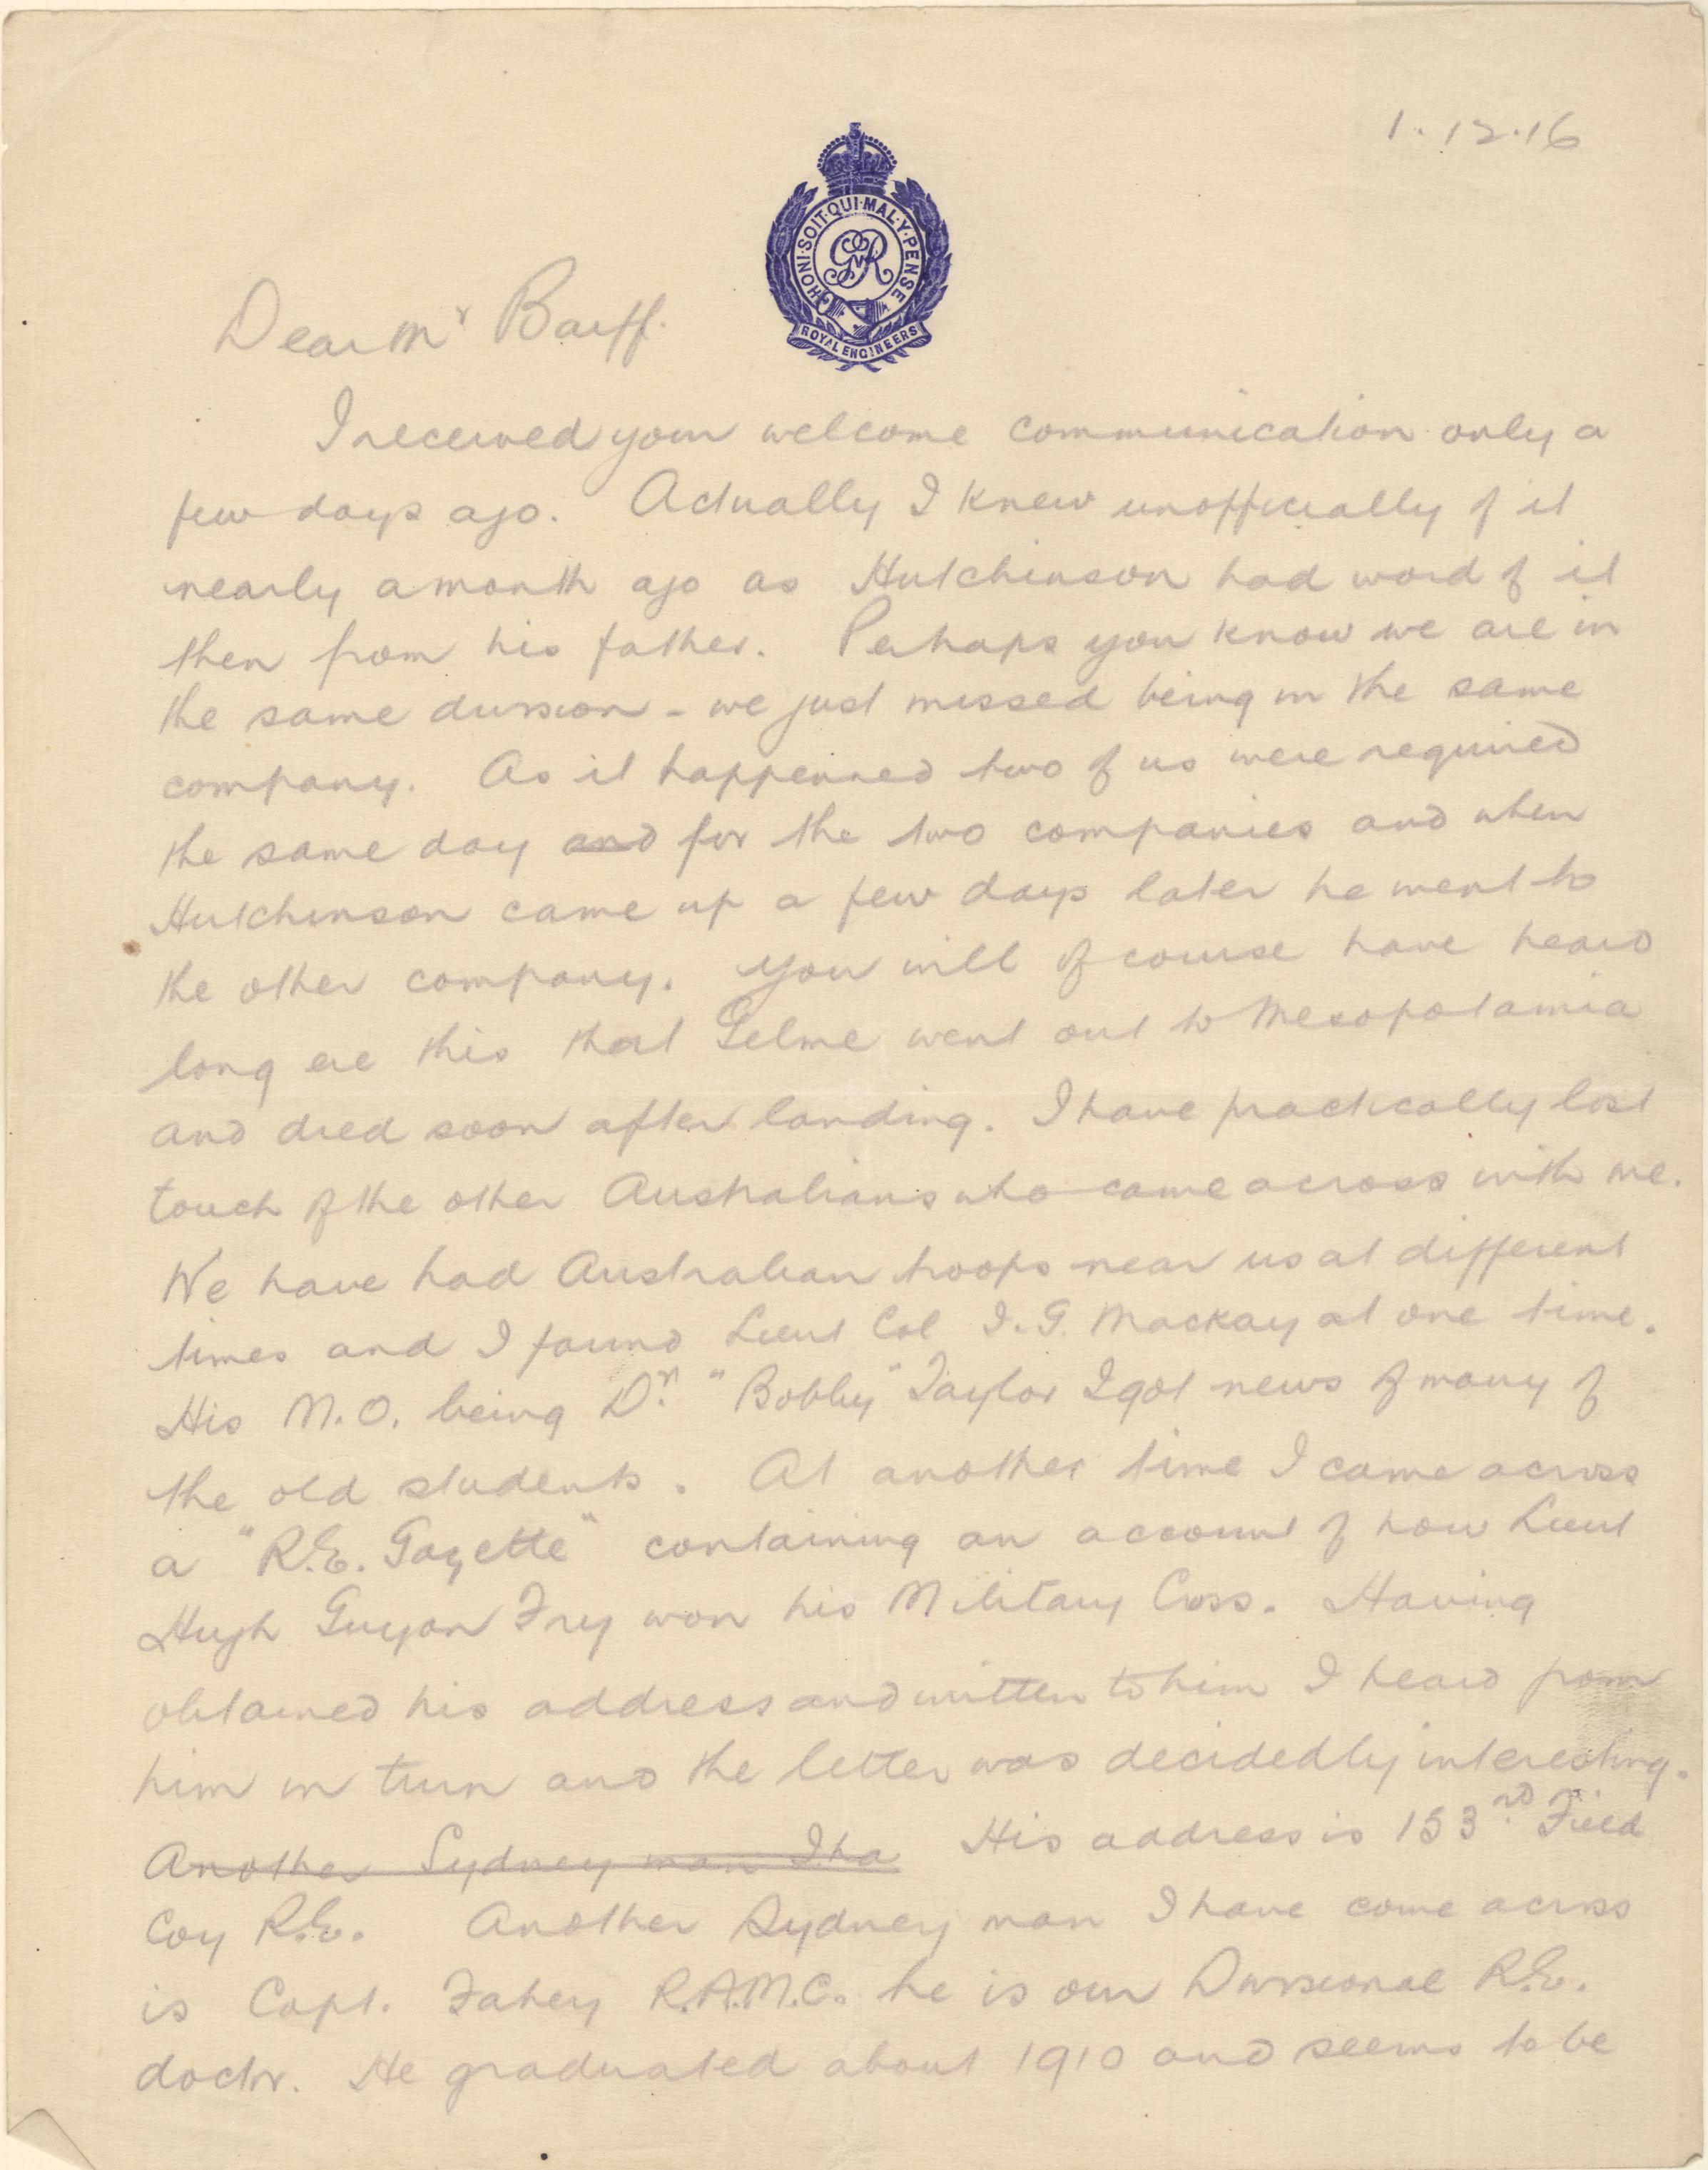 1.12.16
HONI·SOIT·QUI·MAL·Y·PENSE
GR
ROYAL ENGINEERS
Dear Mr Barff.
I received your welcome communication only a
few days ago. Actually I knew unofficially of it
nearly a month ago as Hutchinson had word of it
then from his father. Perhaps you know we are in
the same division - we just missed being in the same
company. As it happenned two of us were required
the same day and for the two companies and when
Hutchinson came up a few days later he went to
the other company. You will of course have heard
long ere this that Selme went out to Mesopotamia
and died soon after landing. I have practically lost
touch of the other Australians who came across with me.
We have had Australian troops near us at different
times and I found Lieut Col I.G. Mackay at one time.
His M.O. being Dr. "Bobby" Taylor I got news of many of
the old students. At another time I came across
a "R.E. Gazette" containing an account of how Lieut
Hugh Guyon Fry won his Military Cross. Having
obtained his address and written to him I heard from
him in turn and the letter was decidedly interesting.
Another Sydney man I ha His address is 153rd. Field
Coy R.E. Another Sydney man I have come across
is Capt. Fahey R.A.M.C. he is our Divisional R.E.
doctor. He graduated about 1910 and seems to be